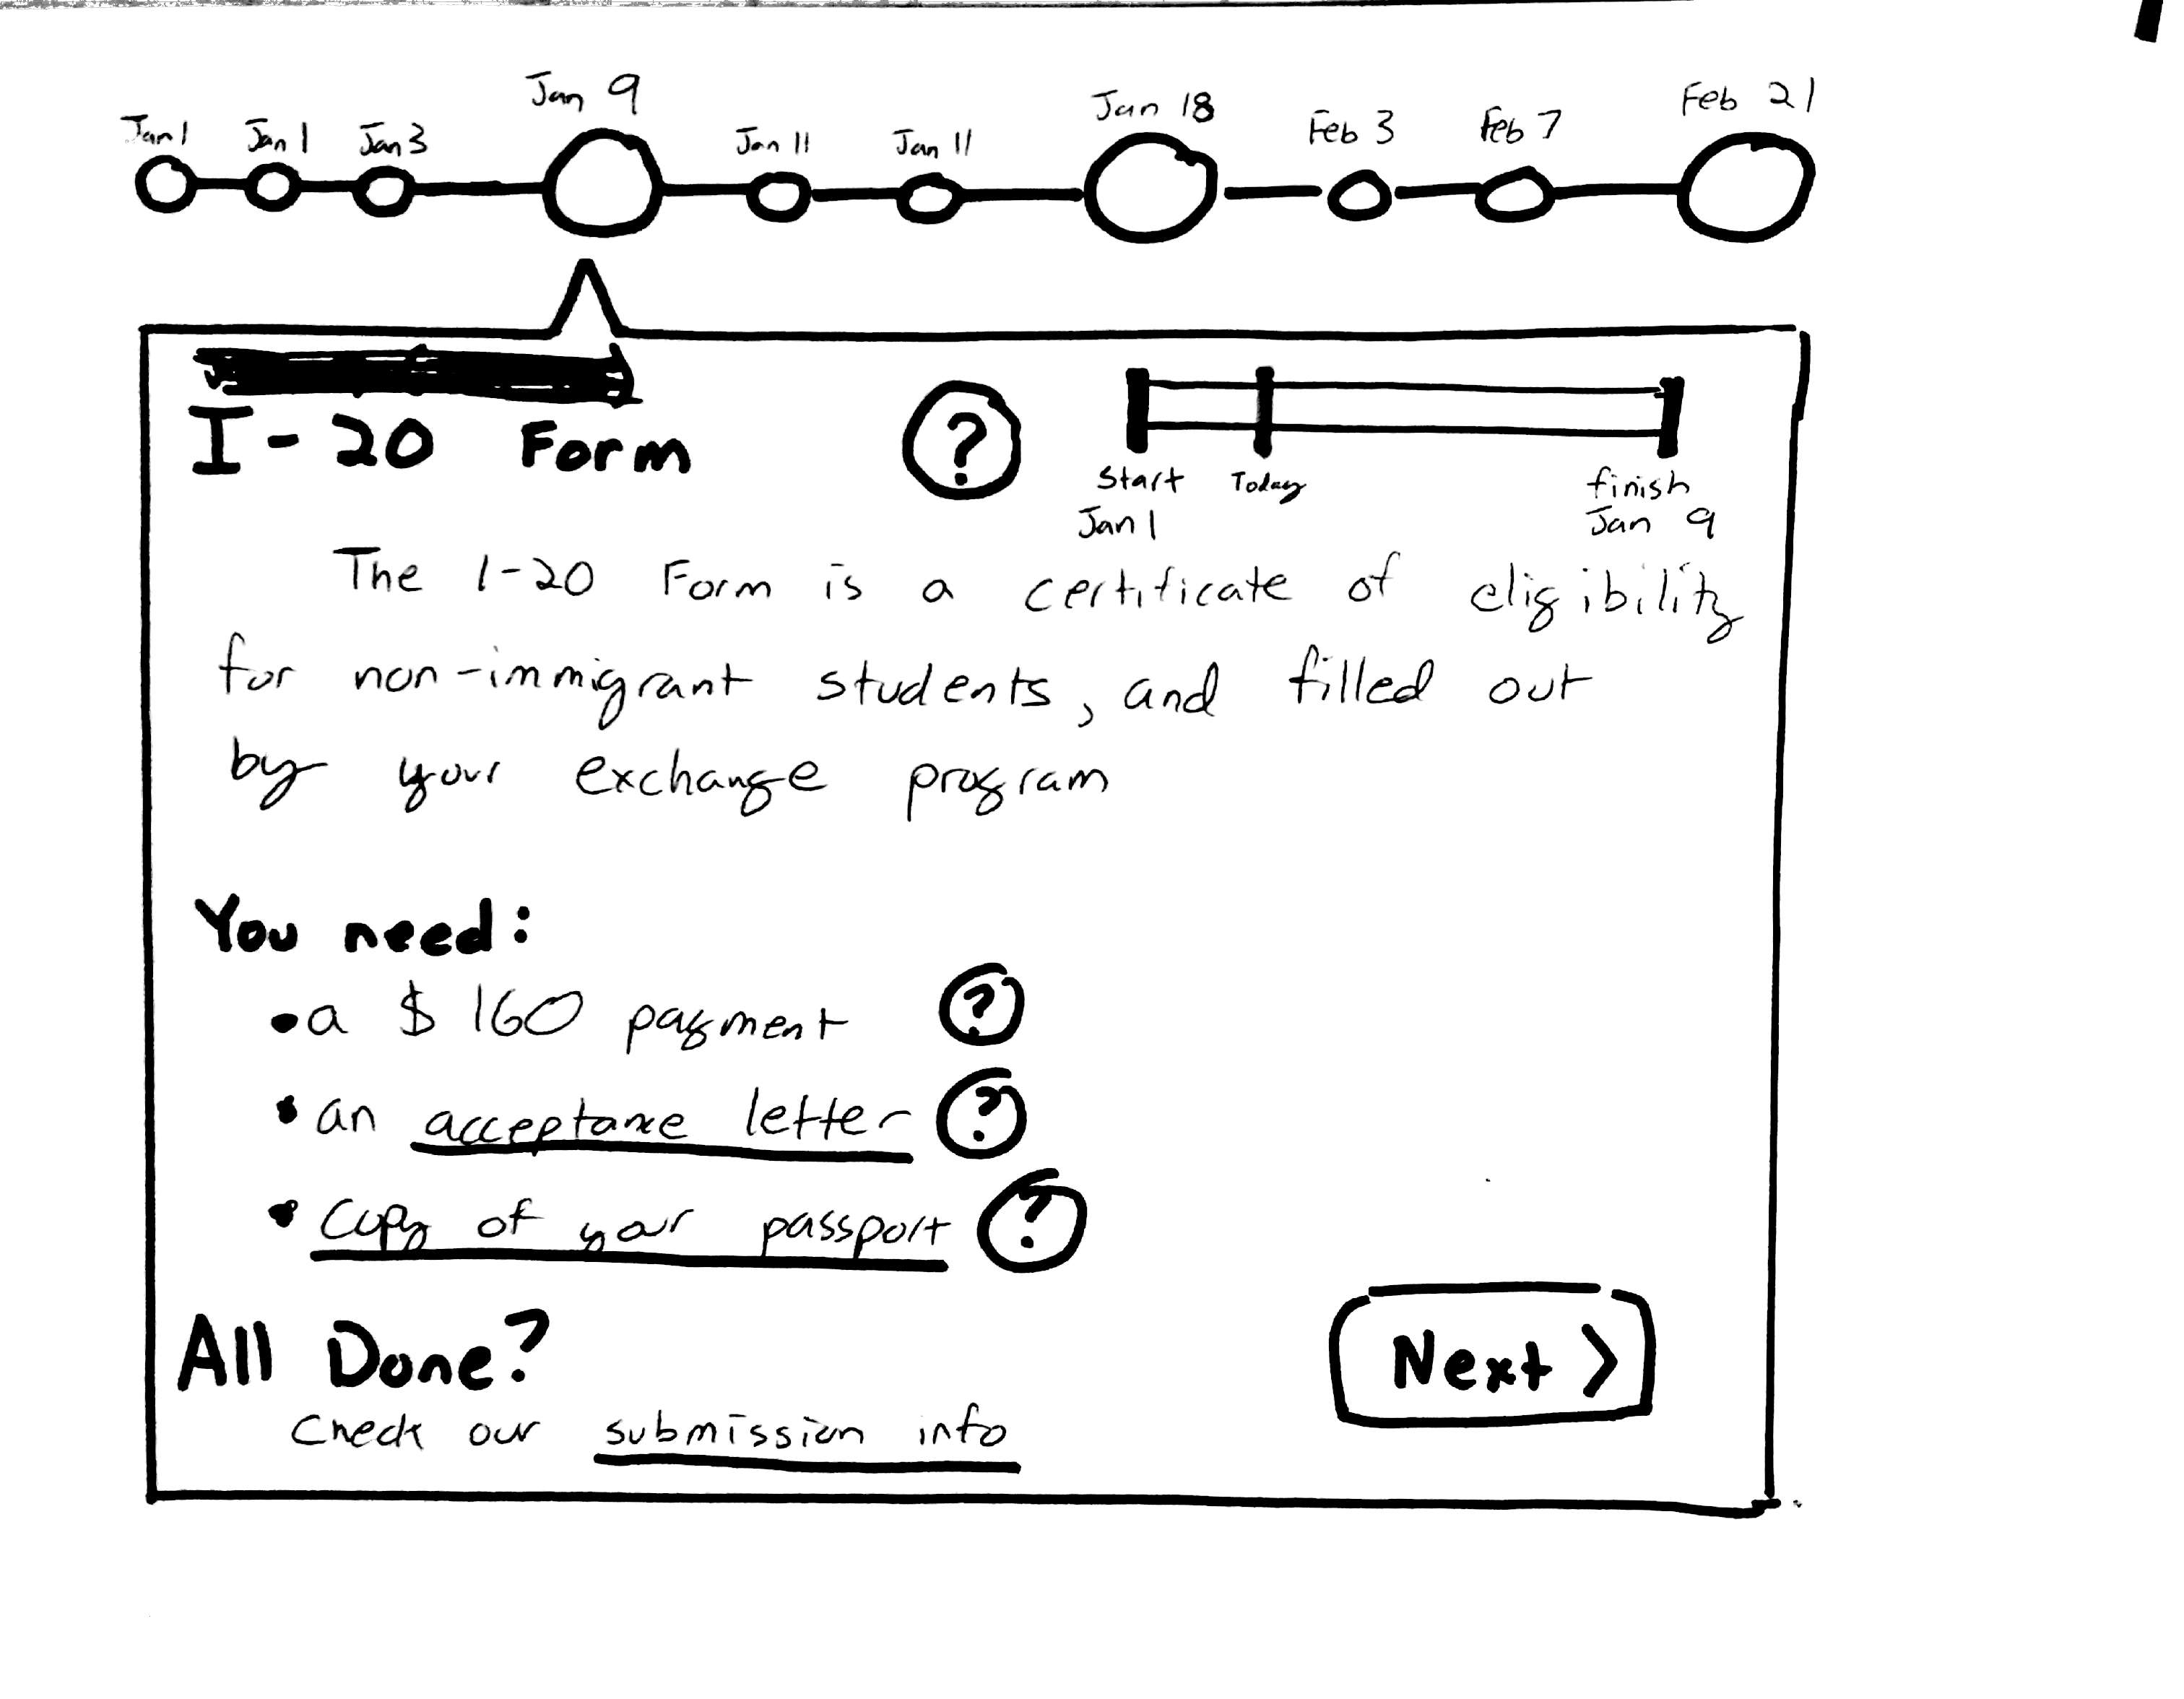 Jan 1 Jan 1 Jan 3 Jan 9 Jan 11 Jan 11 Jan 18 Feb 3 Feb 7 Feb 21
I-20 Form ?
Start Today finish
Jan 1 Jan 9
The I-20 Form is a certificate of eligibility
for non-immigrant students, and filled out
by your exchange program
You need:
• a $160 payment ?
• an acceptance letter ?
• copy of your passport ?
All Done?
Check our submission info
Next >